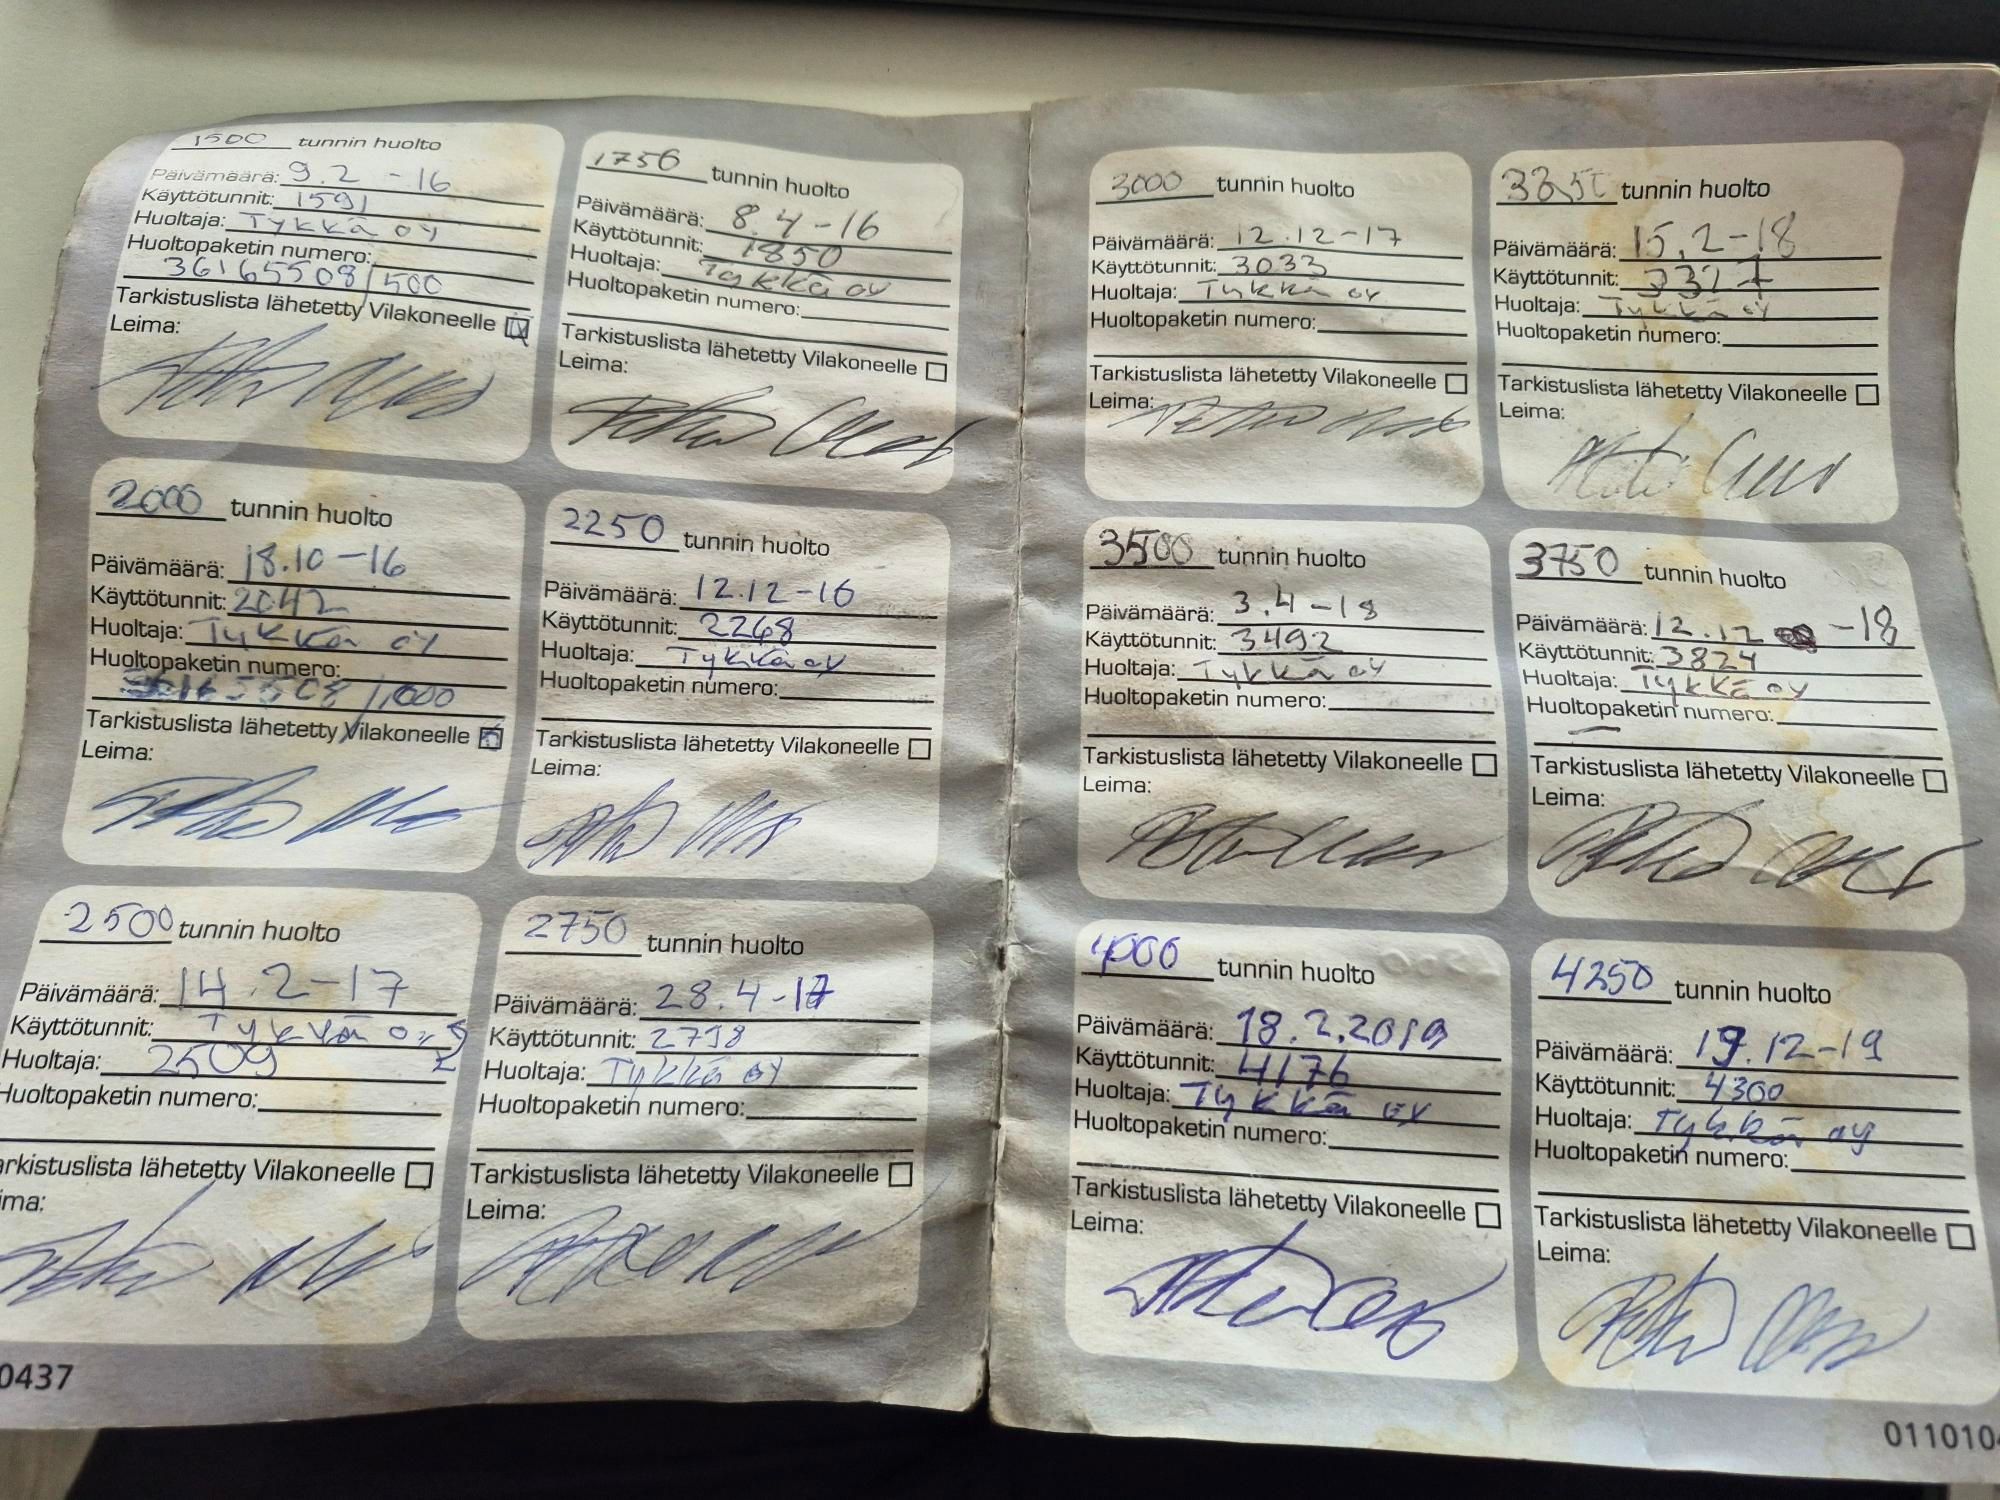 1500 tunnin huolto
Päivämäärä: 9.2 -16
Käyttötunnit: 1591
Huoltaja: Tykkä oy
Huoltopaketin numero:
36165508/500
Tarkistuslista lähetetty Vilakoneelle
Leima:
1750 tunnin huolto
Päivämäärä: 8.4 -16
Käyttötunnit: 1850
Huoltaja: Tykkä oy
Huoltopaketin numero:
Tarkistuslista lähetetty Vilakoneelle
Leima:
2000 tunnin huolto
Päivämäärä: 18.10 -16
Käyttötunnit: 2042
Huoltaja: Tykkä oy
Huoltopaketin numero:
/1000
Tarkistuslista lähetetty Vilakoneelle
Leima:
2250 tunnin huolto
Päivämäärä: 12.12 -16
Käyttötunnit: 2268
Huoltaja: Tykkä oy
Huoltopaketin numero:
Tarkistuslista lähetetty Vilakoneelle
Leima:
2500 tunnin huolto
Päivämäärä: 14.2-17
Käyttötunnit: Tykkä
Huoltaja: 2509
Huoltopaketin numero:
arkistuslista lähetetty Vilakoneelle
ima:
2750 tunnin huolto
Päivämäärä: 28.4 -17
Käyttötunnit: 2798
Huoltaja: Tykkä oy
Huoltopaketin numero:
Tarkistuslista lähetetty Vilakoneelle
Leima:
0437
3000 tunnin huolto
Päivämäärä: 12.12-17
Käyttötunnit: 3033
Huoltaja: Tykkä oy
Huoltopaketin numero:
Tarkistuslista lähetetty Vilakoneelle
Leima:
tunnin huolto
Päivämäärä: 15.2-18
Käyttötunnit: 3327
Huoltaja: Tykkä oy
Huoltopaketin numero:
Tarkistuslista lähetetty Vilakoneelle
Leima:
3500 tunnin huolto
Päivämäärä: 3.4-18
Käyttötunnit: 3492
Huoltaja: Tykkä oy
Huoltopaketin numero:
Tarkistuslista lähetetty Vilakoneelle
Leima:
3750 tunnin huolto
Päivämäärä: 12.12 -18
Käyttötunnit: 3824
Huoltaja: Tykkä oy
Huoltopaketin numero:
Tarkistuslista lähetetty Vilakoneelle
Leima:
4000 tunnin huolto
Päivämäärä: 18.2.2019
Käyttötunnit: 4176
Huoltaja: Tykkä oy
Huoltopaketin numero:
Tarkistuslista lähetetty Vilakoneelle
Leima:
4250 tunnin huolto
Päivämäärä: 19.12-19
Käyttötunnit: 4300
Huoltaja: Tykkä oy
Huoltopaketin numero:
Tarkistuslista lähetetty Vilakoneelle
Leima:
011010